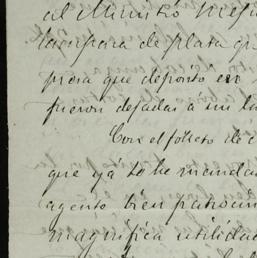 al Ministro
lampara de plata
que deposito en
fueron dejadas a un la
Con el folleto de
que ya le he mandad
agente bien
magnifica utilidad